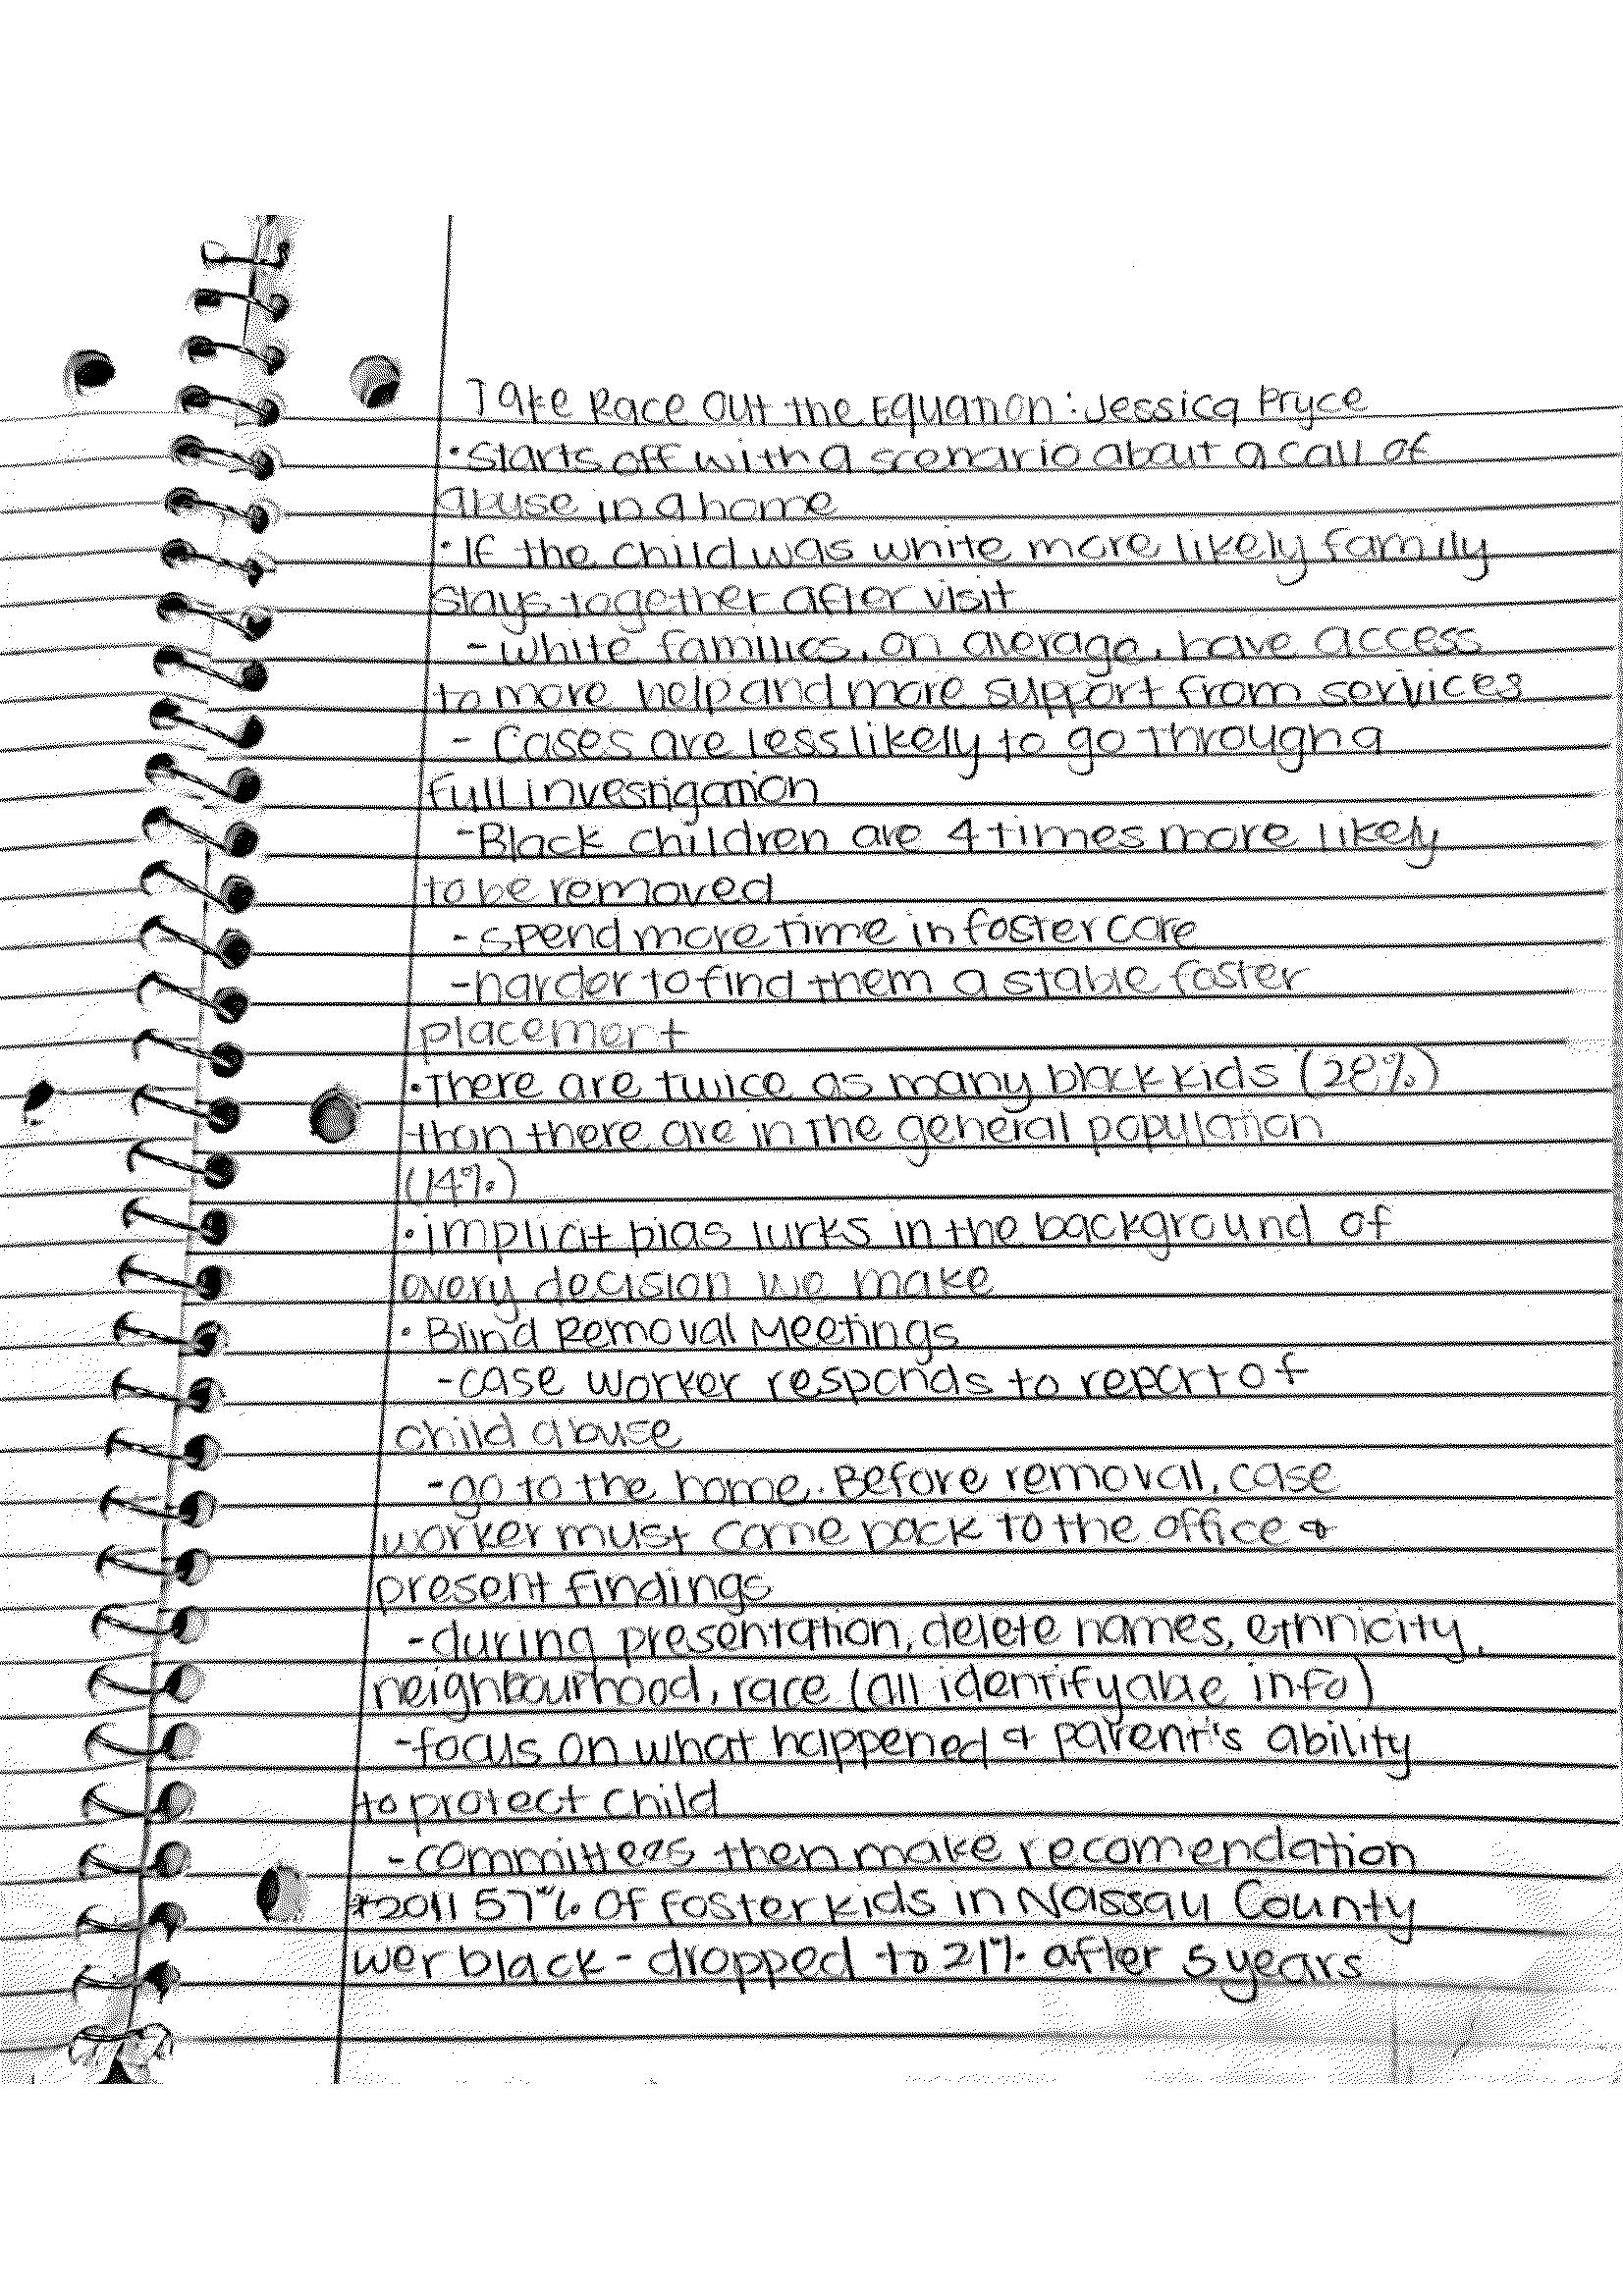 Take Race Out the Equation: Jessica Pryce
• Starts off with a scenario about a call of
abuse in a home
• If the child was white more likely family
stays together after visit
- white families, on average, have access
to more help and more support from services
- Cases are less likely to go through a
full investigation
- Black children are 4 times more likely
to be removed
- spend more time in foster care
- harder to find them a stable foster
placement
• There are twice as many black kids (28%)
than there are in the general population
(14%)
• implicit bias lurks in the background of
every decision we make
• Blind Removal Meetings
- case worker responds to report of
child abuse
- go to the home. Before removal, case
worker must come back to the office &
present findings
- during presentation, delete names, ethnicity,
neighbourhood, race (all identifyable info)
- focus on what happened & parent's ability
to protect child
- committees then make recomendation
*2011 57% of foster kids in Nassau County
wer black - dropped to 21% after 5 years